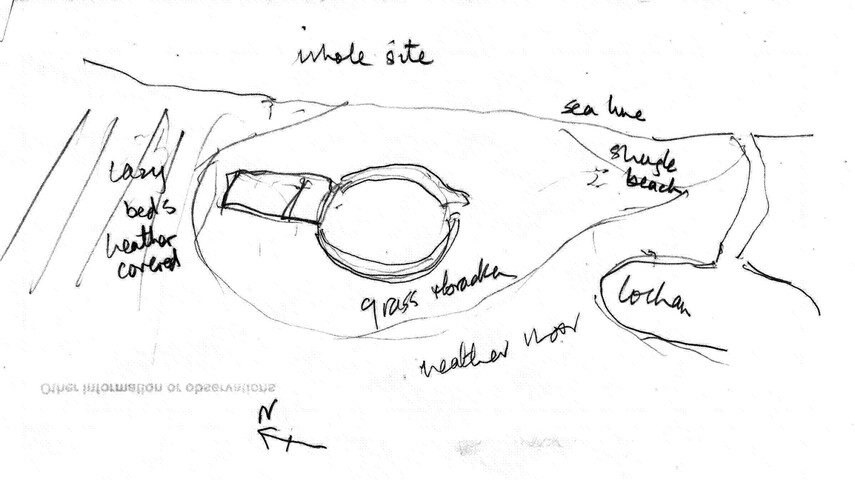 whole site
sea line
shingle
beach
lazy
beds
heather
covered
grass + bracken
lochan
heather moor
Other information or observations
N